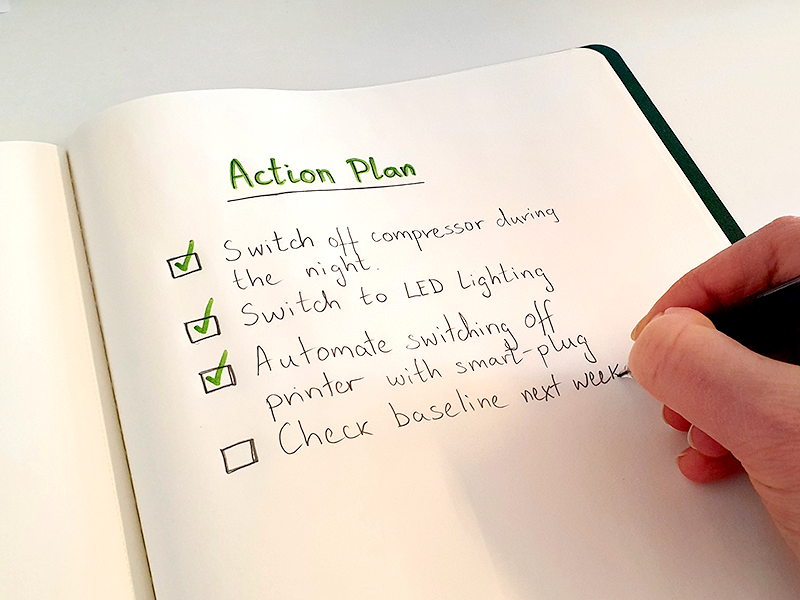 Action Plan
Switch off compressor during
the night.
Switch to LED Lighting
Automate switching off
printer with smart-plug
Check baseline next week